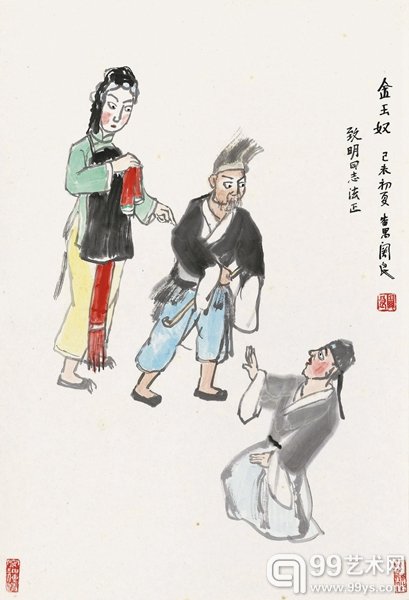 金玉奴
己未初夏 番禺關良
致明同志法正
99艺术网
www.99ys.com